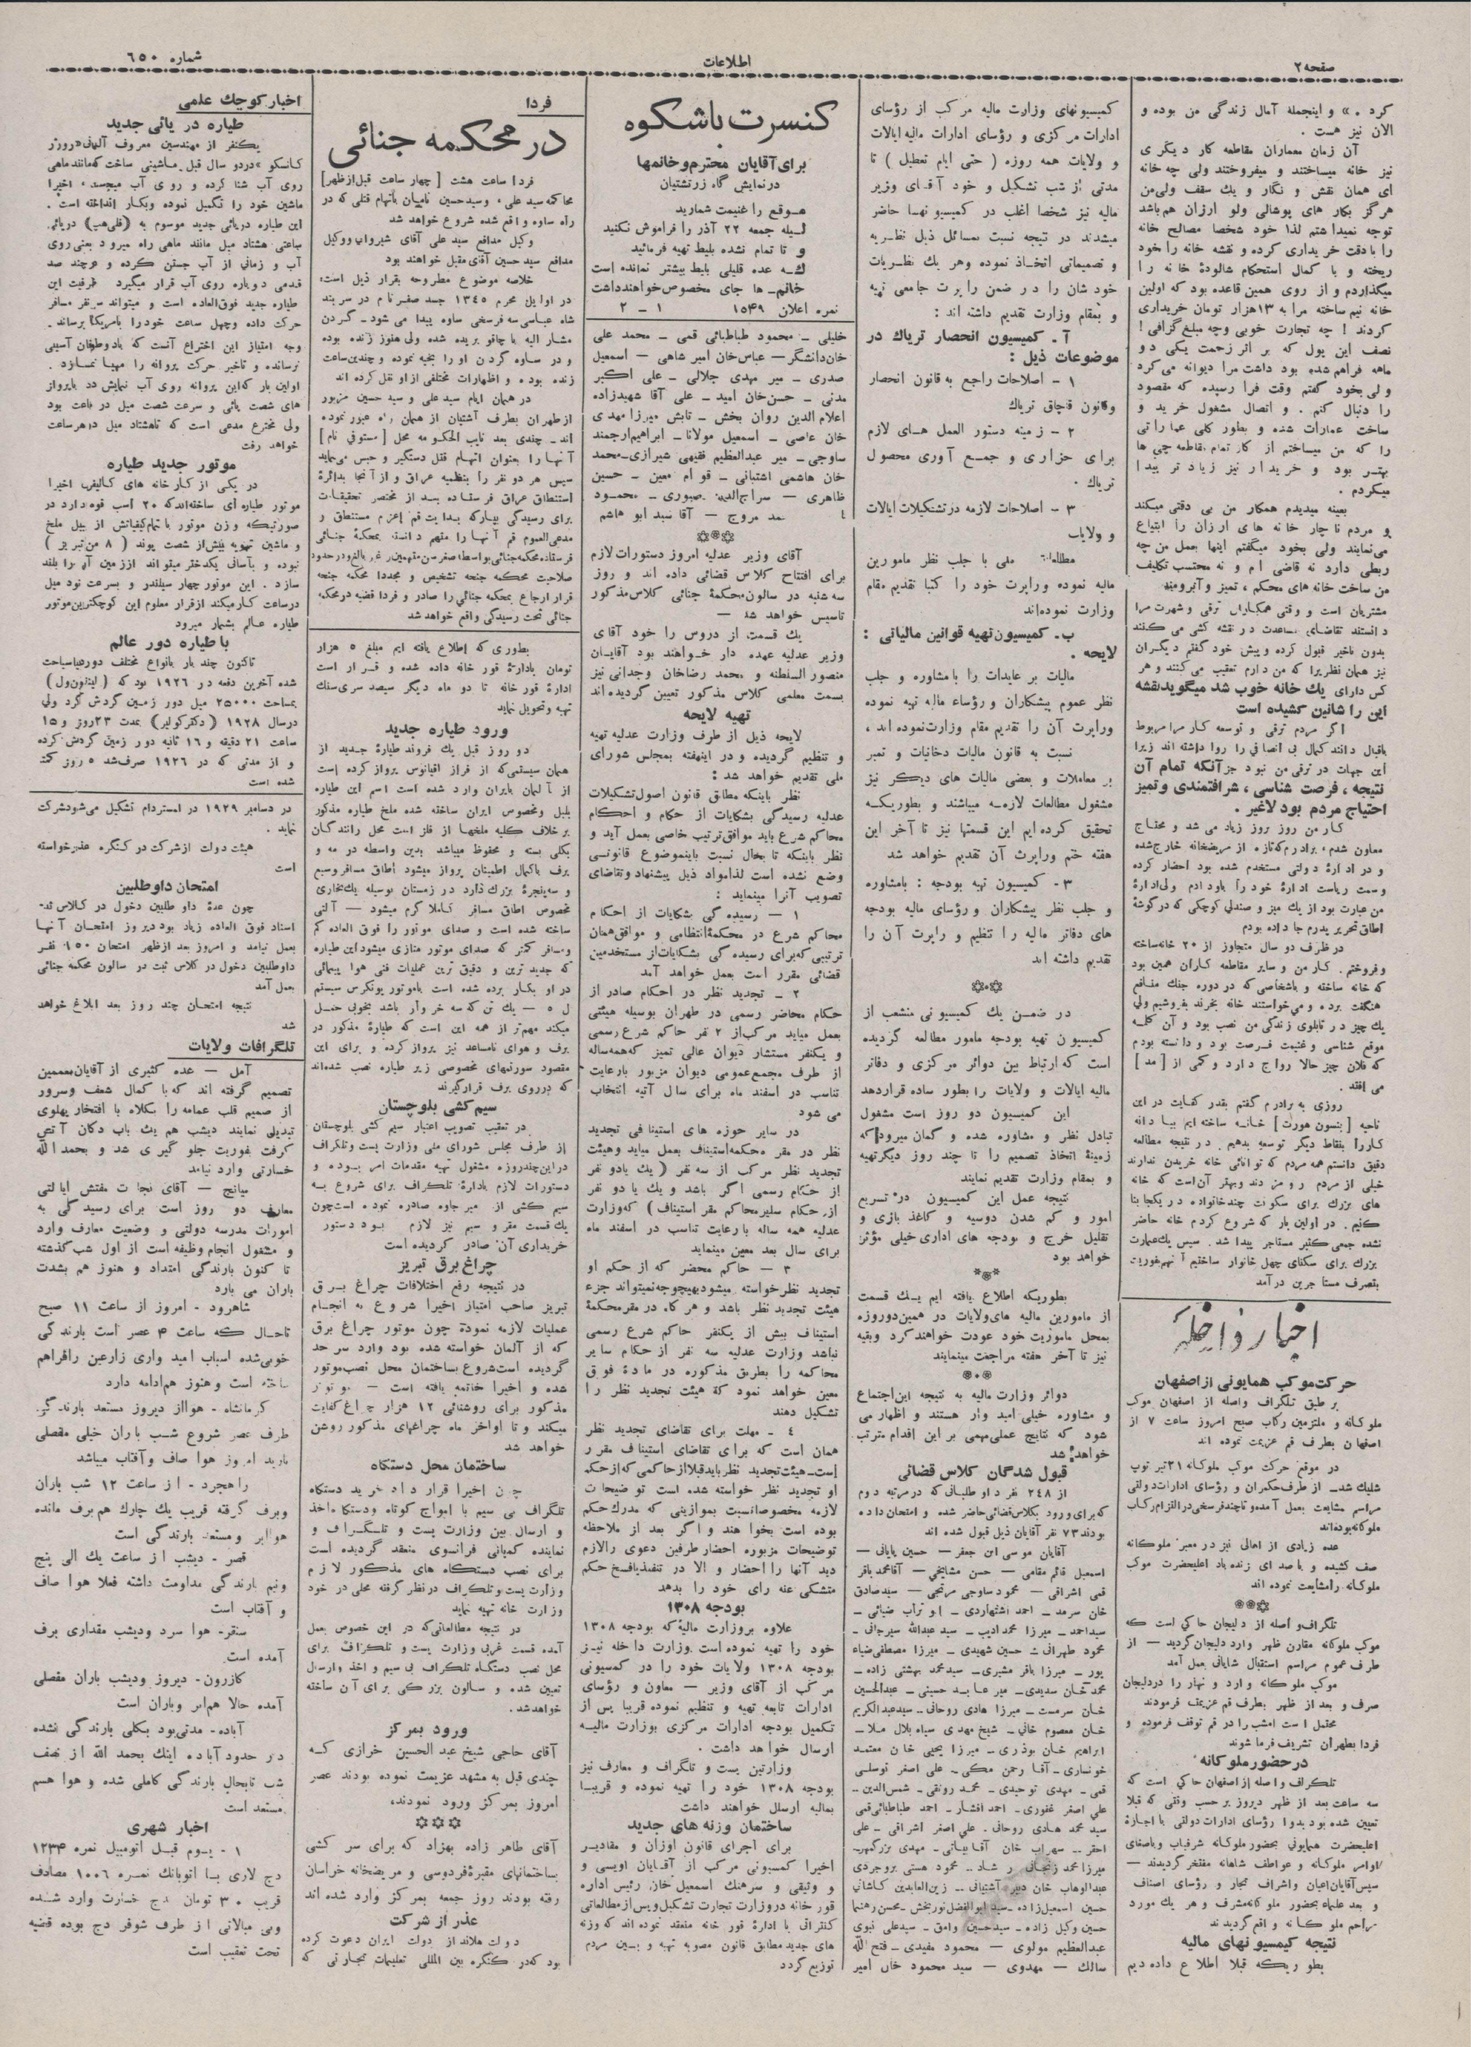 صفحه ۲
اطلاعات
شماره ۶۵۰
کرد .» و اینجمله آمال زندگی من بوده و
الان نیز هست .
آن زمان معماران مقاطعه کار دیگری
نیز خانه میساختند و میفروختند ولی چه خانه
ای همان نقش و نگار و یك سقف ولی من
هرگز بکار های پوشالی ولو ارزان هم باشد
توجه نمیداشتم لذا خود شخصا مصالح خانه
را با دقت خریداری کرده و نقشه خانه را خود
ریخته و با کمال استحکام شالودۀ خانه را
میگذاردم و از روی همین قاعده بود که اولین
خانه نیم ساخته مرا به ۱۳هزار تومان خریداری
کردند ! چه تجارت خوبی وچه مبلغ گزافی!
نصف این پول که بر اثر زحمت یکی دو
ماهه فراهم شده بود داشت مرا دیوانه می کرد
ولی بخود گفتم وقت فرا رسیده که مقصود
را دنبال کنم . و اتصال مشغول خرید و
ساخت عمارات شده و بطور کلی عماراتی
را که من میساختم از کار تمام مقاطعه چی ها
بهتر بود و خریدار نیز زیاد تر پیدا
میکردم .
بعینه میدیدم همکار من بی دقتی میکند
و مردم ناچار خانه های ارزان را ابتیاع
می‌نمایند ولی بخود میگفتم اینها بعمل من چه
ربطی دارد نه قاضی ام و نه محتسب تکلیف
من ساخت خانه های محکم ، تمیز و آبرومند
مشتریان است و وقتی همکاران ترقی و شهرت مرا
دانستند تقاضای مساعدت در نقشه کشی می کنند
بدون تاخیر قبول کرده و پیش خود گفتم دیگران
نیز همان نظریرا که من دارم تعقیب می کنند و هر
کس دارای یك خانه خوب شد میگوید نقشه
این را شانین کشیده است
اگر مردم ترقی و توسعه کار مرا مربوط
باقبال دانند کمال بی انصافی را روا داشته اند زیرا
این جهات در ترقی من نبود جز آنکه تمام آن
نتیجه ، فرصت شناسی ، شرافتمندی و تمیز
احتیاج مردم بود لاغیر .
کار من روز بروز زیاد می شد و محتاج
معاون شدم ، برادرم که تازه از مریضخانه خارج شده
و در ادارۀ دولتی مستخدم شده بود احضار کرده
و سمت ریاست ادارۀ خود را باو دادم ولی ادارۀ
من عبارت بود از یك میز و صندلی کوچکی که در گوشۀ
اطاق تحریر پدرم جا داده بودم
در ظرف دو سال متجاوز از ۲۰ خانه ساخته
و فروختم . کار من و سایر مقاطعه کاران همین بود
که خانه ساخته و باشخاصی که در دوره جنك منافع
هنگفت برده و می‌خواستند خانه بخرند بفروشیم ولی
یك چیز در تابلوی زندگی من نصب بود و آن کلمه
موقع شناسی و غنیمت فرصت بود و دانسته بودم
که فلان چیز حالا رواج دارد و کمی از [مد]
می افتد .
روزی به برادرم گفتم بقدر کفایت در این
ناحیه [بنسون هورت] خانه ساخته ایم بیا دامنه
کار را بنقاط دیگر توسعه بدهیم . در نتیجه مطالعه
دقیق دانستم همه مردم که توانائی خانه خریدن ندارند
خیلی از مردم رو مز دند و بهتر آن است که خانه
های بزرگ برای سکونت چند خانواده در یکجا بنا
کنیم . در اولین بار که شروع کردم خانه حاضر
نشده جمعی کثیر مستاجر پیدا شد . سپس یك عمارت
بزرك برای سکنای چهل خانوار ساختیم آنهم فوریت
بتصرف مستاجرین درآمد
اخبار داخله
حرکت موکب همایونی از اصفهان
بر طبق تلگراف واصله از اصفهان موکب
ملوکانه و ملتزمین رکاب صبح امروز ساعت ۷ از
اصفهان بطرف قم عزیمت نموده اند
در موقع حرکت موکب ملوکانه ۲۱ تیر توپ
شلیك شد . از طرف حکمران و رؤسای ادارات دولتی
مراسم مشایعت بعمل آمده و تا چند فرسخی در التزام رکاب
ملوکانه بوده‌اند
عده زیادی از اهالی نیز در معبر ملوکانه
صف کشیده و با صدای زنده باد اعلیحضرت موکب
ملوکانه را مشایعت نموده اند
تلگراف واصله از دلیجان حاکی است که
موکب ملوکانه مقارن ظهر وارد دلیجان گردید — از
طرف عموم مراسم استقبال شایانی بعمل آمد
موکب ملوکانه وارد و نهار را در دلیجان
صرف و بعد از ظهر بطرف قم عزیمت فرمودند
محتمل است امشب را در قم توقف فرموده و
فردا بطهران تشریف فرما شوند
در حضور ملوکانه
تلگراف واصله از اصفهان حاکی است که
سه ساعت بعد از ظهر دیروز بر حسب وقتی که قبلا
تعیین شده بود بدوا رؤسای ادارات دولتی با اجازۀ
اعلیحضرت همایونی بحضور ملوکانه شرفیاب و باصغای
اوامر ملوکانه و عواطف شاهانه مفتخر گردیدند —
سپس آقایان اعیان و اشراف تجار و رؤسای اصناف
و بعد علماء بحضور ملوکانه مشرف و هر یك مورد
مراحم ملوکانه واقع گردیدند
نتیجه کمیسیونهای مالیه
بطوریکه قبلا اطلاع داده دیم
کمیسیونهای وزارت مالیه مرکب از رؤسای
ادارات مرکزی و رؤسای ادارات مالیه ایالات
و ولایات همه روزه ( حتی ایام تعطیل ) تا
مدتی از شب تشکیل و خود آقای وزیر
مالیه نیز شخصا اغلب در کمیسیونها حاضر
میشدند در نتیجه نسبت بمسائل ذیل نظریه
و تصمیماتی اتخاذ نموده و هر یك نظریات
خودشان را در ضمن راپرت جامعی تهیه
و بمقام وزارت تقدیم داشته اند :
آ - کمیسیون انحصار تریاك در
موضوعات ذیل :
۱ - اصلاحات راجع به قانون انحصار
وقانون قاچاق تریاك
۲ - زمینه دستور العمل های لازم
برای حزاری و جمع آوری محصول
تریاك .
۳ - اصلاحات لازمه در تشکیلات ایالات
و ولایات
مطالعه ملی با جلب نظر مامورین
مالیه نموده و راپرت خود را کتبا تقدیم مقام
وزارت نموده‌اند
ب - کمیسیون تهیه قوانین مالیاتی :
لایحه .
مالیات بر عایدات را با مشاوره و جلب
نظر عموم پیشکاران و رؤساء مالیه تهیه نموده
وراپرت آن را تقدیم مقام وزارت نموده‌اند ،
نسبت به قانون مالیات دخانیات و تمبر
بر معاملات و بعضی مالیات های دیگر نیز
مشغول مطالعات لازمه میباشند و بطوریکه
تحقیق کرده ایم این قسمتها نیز تا آخر این
هفته ختم وراپرت آن تقدیم خواهد شد
۳ - کمیسیون تهیه بودجه : با مشاوره
و جلب نظر پیشکاران و رؤسای مالیه بودجه
های دفاتر مالیه را تنظیم و راپرت آن را
تقدیم داشته اند
در ضمن یك کمیسیونی منشعب از
کمیسیون تهیه بودجه مامور مطالعه گردیده
است که ارتباط بین دوائر مرکزی و دفاتر
مالیه ایالات و ولایات را بطور ساده قرار دهد
این کمیسیون دو روز است مشغول
تبادل نظر و مشاوره شده و گمان میرود که
زمینۀ اتخاذ تصمیم را تا چند روز دیگر تهیه
و بمقام وزارت تقدیم نمایند
نتیجه عمل این کمیسیون در تسریع
امور و کم شدن دوسیه و کاغذ بازی و
تقلیل خرج و بودجه های اداری خیلی مؤثر
خواهد بود
بطوریکه اطلاع یافته ایم یك قسمت
از مامورین مالیه های ولایات در همین دو روزه
بمحل ماموریت خود عودت خواهند کرد و بقیه
نیز تا آخر هفته مراجعت مینمایند
دوائر وزارت مالیه به نتیجه این اجتماع
و مشاوره خیلی امید وار هستند و اظهار می
شود که نتایج عملی مهمی بر این اقدام مترتب
خواهد شد
قبول شدگان کلاس قضائی
از ۲۴۸ نفر داوطلبانی که در مرتبه دوم
که برای ورود بکلاس قضائی حاضر شده و امتحان داده
بودند ۷۳ نفر آقایان ذیل قبول شده اند
آقایان موسی ابن جعفر — حسین پایانی —
اسمعیل قائم مقامی — حسن مشایخی — آقا محمد باقر
قمی اشراقی — محمود ساوجی مرتجی — سید صادق
خان سرمد — احمد اشتهاردی — ابوتراب ضیائی —
سید احمد — میرزا محمد ادیب — سید عبدالله سیرجانی —
محمود طهرانی — حسین شهیدی — میرزا مصطفی ضیاء
پور — میرزا باقر مشیری — سید محمد بهشتی زاده —
محمد خان سدیدی — میر عابد حسینی — عبدالحسین
خان سرمست — میرزا هادی روحانی — سید عبدالکریم
خان معصوم خانی — شیخ مهدی سپاه بلال ملا —
ابراهیم خان بوذری — میرزا یحیی خان معتمد
خونساری — آقا رحمن مکی — علی اصغر توسلی
قمی — مهدی توحیدی — محمد رونقی — شمس الدین —
علی اصغر غفوری — احمد افشار — احمد طباطبائی قمی
سید محمد هادی روحانی . علی اصغر اشراقی — علی
احقر — سهراب خان آقا بیاتی — مهدی بزرگمهر —
میرزا محمد زنجانی رشاد — محمود هستی بروجردی
عبدالوهاب خان دبیر آشتیانی — زین العابدین کاشانی
حسین اسمعیل زاده — سید ابوالفضل نوربخش — محسن رهنما
حسین وکیل زاده — سید حسین وامق — سید علی نبوی
عبدالعظیم مولوی — محمود مفیدی — فتح الله
سالك — مهدوی — سید محمود خان امیر
کنسرت باشکوه
برای آقایان محترم و خانمها
در نمایش گاه زرتشتیان
موقع را غنیمت شمارید
لیله جمعه ۲۲ آذر را فراموش نکنید
و تا تمام نشده بلیط تهیه فرمائید
که عده قلیلی بلیط بیشتر نمانده است
خانم ها جای مخصوص خواهند داشت
نمره اعلان ۱۵۴۹ ۱ - ۲
خلیلی - محمود طباطبائی قمی — محمد علی
خان دانشگر — عباس خان امیر شاهی — اسمعیل
صدری — میر مهدی جلالی — علی اکبر
مدنی — حسن خان امید — علی آقا شهیدزاده
اعلام الدین روان بخش — تابش میرزا مهدی
خان عاصی — اسمعیل مولانا — ابراهیم ارجمند
ساوجی — میر عبدالعظیم فقیهی شیرازی — محمد
خان هاشمی آشتیانی — قوام معین — حسین
طاهری — سراج الدین صبوری — محمود
مروج — آقا سید ابو هاشم
آقای وزیر عدلیه امروز دستورات لازم
برای افتتاح کلاس قضائی داده اند و روز
سه شنبه در سالون محکمۀ جنائی کلاس مذکور
تاسیس خواهد شد —
یك قسمت از دروس را خود آقای
وزیر عدلیه عهده دار خواهند بود آقایان
منصور السلطنه و محمد رضا خان وجدانی نیز
بسمت معلمی کلاس مذکور تعیین گردیده اند
تهیه لایحه
لایحه ذیل از طرف وزارت عدلیه تهیه
و تنظیم گردیده و در اینهفته بمجلس شورای
ملی تقدیم خواهد شد :
نظر باینکه مطابق قانون اصول تشکیلات
عدلیه رسیدگی بشکایات از حکام و احکام
محاکم شرع باید موافق ترتیب خاصی بعمل آید و
نظر باینکه تا بحال نسبت باینموضوع قانونی
وضع نشده است لذا مواد ذیل پیشنهاد و تقاضای
تصویب آنرا مینماید :
۱ — رسیده گی بشکایات از احکام
محاکم شرع در محکمۀ انتظامی و موافق همان
ترتیبی که برای رسیده گی بشکایات از مستخدمین
قضائی مقرر است بعمل خواهد آمد
۲ - تجدید نظر در احکام صادر از
حکام محاضر رسمی در طهران بوسیله هیئتی
بعمل میاید مرکب از ۲ نفر حاکم شرع رسمی
و یکنفر مستشار دیوان عالی تمیز که همه ساله
از طرف مجمع عمومی دیوان مزبور بارعایت
تناسب در اسفند ماه برای سال آتیه انتخاب
می شود
در سایر حوزه های استینافی تجدید
نظر در مقر محکمه استیناف بعمل میاید وهیئت
تجدید نظر مرکب از سه نفر ( یك یا دو نفر
از حکام رسمی اگر باشد و یك یا دو نفر
از حکام سایر محاکم مقر استیناف ) که وزارت
عدلیه همه ساله با رعایت تناسب در اسفند ماه
برای سال بعد معین مینماید
۳ — حاکم محضر که از حکم او
تجدید نظر خواسته میشود بهیچوجه نمیتواند جزء
هیئت تجدید نظر باشد و هر گاه در مقر محکمۀ
استیناف بیش از یکنفر حاکم شرع رسمی
نباشد وزارت عدلیه سه نفر از حکام سایر
محاکمه را بطریق مذکوره در مادۀ فوق
معین خواهد نمود که هیئت تجدید نظر را
تشکیل دهند
٤ - مهلت برای تقاضای تجدید نظر
همان است که برای تقاضای استیناف مقرر
است — هیئت تجدید نظر باید قبلا از حاکمی که از حکم
او تجدید نظر خواسته شده است توضیحات
لازمه مخصوصا نسبت بموازینی که مدرك حکم
بوده است بخواهند و اگر بعد از ملاحظه
توضیحات مزبوره احضار طرفین دعوی را لازم
دید آنها را احضار و الا در تنفیذ یا فسخ حکم
متشکی عنه رای خود را بدهد
بودجه ۱۳۰۸
علاوه بر وزارت مالیۀ که بودجه ۱۳۰۸
خود را تهیه نموده است وزارت داخله نیز
بودجه ۱۳۰۸ ولایات خود را در کمیسیونی
مرکب از آقای وزیر — معاون و رؤسای
ادارات تابعه تهیه و تنظیم نموده قریبا پس از
تکمیل بودجه ادارات مرکزی بوزارت مالیه
ارسال خواهد داشت .
وزارتین پست و تلگراف و معارف نیز
بودجه ۱۳۰۸ خود را تهیه نموده و قریبا
بمالیه ارسال خواهند داشت
ساختمان وزنه های جدید
برای اجرای قانون اوزان و مقادیر
اخیرا کمسیونی مرکب از آقایان اویسی و
و وثیقی و سرهنك اسمعیل خان رئیس اداره
قورخانه در وزارت تجارت تشکیل و پس از مطالعاتی
کنتراتی با ادارۀ قور خانه منعقد نموده اند که وزنه
های جدید مطابق قانون مصوبه تهیه و بین مردم
توزیع گردد
فردا
در محکمه جنائی
فردا ساعت هشت [چهار ساعت قبل از ظهر]
محاکمه سید علی و سید حسین نامیان باتهام قتلی که در
راه ساوه واقع شده شروع خواهد شد
وکیل مدافع سید علی آقای شیروانی و وکیل
مدافع سید حسین آقای مقبل خواهند بود
خلاصه موضوع مطروحه بقرار ذیل است:
در اوایل محرم ۱۳۴۵ جسد صفر نام در سر بند
شاه عباسی سه فرسخی ساوه پیدا می شود — گردن
مشار الیه با چاقو بریده شده ولی هنوز زنده بوده
و در ساوه گردن او را بخیه نموده و چندین ساعت
زنده بوده و اظهارات مختلفی از او نقل کرده اند
در همان ایام سید علی و سید حسین مزبور
از طهران بطرف آشتیان از همان راه عبور نموده
اند — چندی بعد نایب الحکومه محل [مستوفی نام]
آنها را بعنوان اتهام قتل دستگیر و حبس می‌نماید
سپس هر دو نفر را بنظمیه عراق و از آنجا بدائرۀ
استنطاق عراق فرستاده بعد از مختصر تحقیقات
برای رسیدگی ببارکه بدایت قم اعزام مستنطق و
مدعی العموم قم آنها را متهم دانسته بمحکمۀ جنائی
فرستاده محکمه جنائی بواسطه صغر سن متهمین رد و در حدود
صلاحیت محکمه جنحه تشخیص و مجددا محکمه جنحه
قرار ارجاع بمحکمه جنائی را صادر و فردا قضیه در محکمۀ
جنائی تحت رسیدگی واقع خواهد شد
بطوری که اطلاع یافته ایم مبلغ ۵ هزار
تومان بادارۀ قور خانه داده شده و قرار است
ادارۀ قور خانه تا دو ماه دیگر سیصد سری سنك
تهیه و تحویل نماید
ورود طیاره جدید
دو روز قبل یك فروند طیارۀ جدید از
همان سیستمی که از فراز اقیانوس پرواز کرده است
از آلمان بایران وارد شده است اسم این طیاره
بلبل و مخصوص ایران ساخته شده ملخ طیاره مذکور
بر خلاف کلیه ملخها از فلز است محل رانندگان
بکلی بسته و محفوظ میباشد بدین واسطه در مه و
برف باکمال اطمینان پرواز میشود اطاق مسافر وسیع
و سه پنجرۀ بزرك دارد در زمستان بوسیله یك بخاری
مخصوص اطاق مسافر کاملا گرم میشود — آلتی
ساخته شده است و صدای موتور را فوق العاده کم
و مسافر کمتر که صدای موتور متاذی میشود این طیاره
که جدید ترین و دقیق ترین عملیات فنی هوا پیمائی
در او بکار برده شده است یا موتور یونکرس سیستم
ل ۵ — یك تن که سه خروار باشد بخوبی حمل
میکند مهم‌تر از همه این است که طیارۀ مذکور در
برف و هوای نامساعد نیز پرواز کرده و برای این
مقصود سورتمهای مخصوصی زیر طیاره نصب شده‌اند
که در روی برف قرار گیرند
سیم کشی بلوچستان
در تعقیب تصویب اعتبار سیم کشی بلوچستان
از طرف مجلس شورای ملی وزارت پست و تلگراف
در این چند روزه مشغول تهیه مقدمات امر بوده و
دستورات لازم بادارۀ تلگراف برای شروع به
سیم کشی از میر جاوه صادره نموده است چون
یك قسمت مقره و سیم نیز لازم بود دستور
خریداری آن صادر گردیده است
چراغ برق تبریز
در نتیجه رفع اختلافات چراغ برق
تبریز صاحب امتیاز اخیرا شروع به انجام
عملیات لازمه نموده چون موتور چراغ برق
که از آلمان خواسته شده بود وارد سر حد
گردیده است شروع بساختمان محل نصب موتور
شده و اخیرا خاتمه یافته است — موتور
مذکور برای روشنائی ۱۲ هزار چراغ کفایت
میکند و تا اواخر ماه چراغهای مذکور روشن
خواهد شد
ساختمان محل دستگاه
چون اخیرا قرار داد خرید دستگاه
تلگراف بی سیم با امواج کوتاه ودستگاه اخذ
و ارسال بین وزارت پست و تلگراف و
نماینده کمپانی فرانسوی منعقد گردیده است
برای نصب دستگاه های مذکور لازم
وزارت پست و تلگراف در نظر گرفته محلی در خود
وزارت خانه تهیه نماید
در نتیجه مطالعاتی که در این خصوص بعمل
آمده قسمت غربی وزارت پست و تلگراف برای
محل نصب دستگاه تلگراف بی سیم و اخذ و ارسال
تعیین شده و سالون بزرگی برای آن ساخته
خواهد شد .
ورود بمرکز
آقای حاجی شیخ عبد الحسین خرازی که
چندی قبل به مشهد عزیمت نموده بودند عصر
امروز بمرکز ورود نمودند،
آقای طاهر زاده بهزاد که برای سر کشی
ساختمانهای مقبرۀ فردوسی و مریضخانه خراسان
رفته بودند روز جمعه بمرکز وارد شده اند
عذر از شرکت
دولت هلاند از دولت ایران دعوت کرده
بود که در کنگره بین المللی تعلیمات تجارتی که
اخبار کوچك علمی
طیاره دریائی جدید
یکنفر از مهندسین معروف آلمانی «روزژ
کانسکو» در دو سال قبل ماشینی ساخت که مانند ماهی
روی آب شنا کرده و روی آب میجست ، اخیرا
ماشین خود را تکمیل نموده و بکار انداخته است .
این طیاره دریائی جدید موسوم به (فلی هپ) دریائی
ساعتی هشتاد میل مانند ماهی راه میرود یعنی روی
آب و زمانی از آب جستن کرده و هر چند صد
قدمی دوباره روی آب قرار میگیرد ظرفیت این
طیاره جدید فوق العاده است و میتواند سی نفر مسافر
حرکت داده و چهل ساعت خود را بامریکا برساند .
وجه امتیاز این اختراع آنست که باد و طوفان آسیبی
نرسانده و تاخیر حرکت پروانه را مهیا نسازد .
اولین بار که این پروانه روی آب نمایش داد با پرواز
های شصت پائی و سرعت شصت میل در ساعت بود
ولی مخترع مدعی است که تا هشتاد میل در هر ساعت
خواهد رفت
موتور جدید طیاره
در یکی از کارخانه های کالیفرنی اخیرا
موتور طیاره ای ساخته‌اند که ۲۰ اسب قوه دارد در
صورتیکه وزن موتور با تمام کیفیاتش از بیل ملخ
و ماشین تهویه بیش از شصت پوند (۸ من تبریز)
نبوده و بآسانی یکدختر میتواند از زمین آنرا بلند
سازد . این موتور چهار سیلندر و بسرعت نود میل
در ساعت کار میکند از قرار معلوم این کوچکترین موتور
طیاره عالم بشمار میرود
با طیاره دور عالم
تاکنون چند بار بانواع مختلف دور دنیا سیاحت
شده آخرین دفعه در ۱۹۲۶ بود که (ایوانس ول)
بمساحت ۲۵۰۰۰ میل دور زمین گردش کرد ولی
در سال ۱۹۲۸ (دکتر کولیر) بمدت ۲۳ روز و ۱۵
ساعت ۲۱ دقیقه و ۱۶ ثانیه دور زمین گردش کرده
و از مدتی که در ۱۹۲۶ صرف شد ۵ روز کمتر
شده است
در دسامبر ۱۹۲۹ در امستردام تشکیل می‌شود شرکت
نماید .
هیئت دولت از شرکت در کنگره عذر خواسته
است
امتحان داوطلبین
چون عدۀ داوطلبین دخول در کلاس ثبت
اسناد فوق العاده زیاد بود دیروز امتحان آنها
بعمل نیامد و امروز بعد از ظهر امتحان ۱۵۰ نفر
داوطلبین دخول در کلاس ثبت در سالون محکمه جنائی
بعمل آمد
نتیجه امتحان چند روز بعد ابلاغ خواهد
شد
تلگرافات ولایات
آمل — عده کثیری از آقایان معممین
تصمیم گرفته اند که با کمال شعف وسرور
از صمیم قلب عمامه را بکلاه با افتخار پهلوی
تبدیلی نمایند دیشب هم یك باب دکان آتش
گرفت بفوریت جلو گیری شد و بحمد الله
خسارتی وارد نیامد
میانج — آقای نجات مفتش ایالتی
معارف دو روز است برای رسیدگی به
امورات مدرسه دولتی و وضعیت معارف وارد
و مشغول انجام وظیفه است از اول شب گذشته
تا کنون بارندگی امتداد و هنوز هم بشدت
باران می بارد
شاهرود - امروز از ساعت ۱۱ صبح
تاحال که ساعت ۴ عصر است بارندگی
خوبی شده اسباب امید واری زارعین را فراهم
ساخته است و هنوز هم ادامه دارد
کرمانشاه - هوا از دیروز مستعد بارندگی
طرف عصر شروع شب باران خیلی مفصلی
بارید امروز هوا صاف و آفتاب میباشد
راهجرد - از ساعت ۱۲ شب باران
و برف گرفته قریب یك چارك هم برف مانده
هوا ابر و مستعد بارندگی است
قصر - دیشب از ساعت یك الی پنج
ونیم بارندگی مداومت داشته فعلا هوا صاف
و آفتاب است
سنقر - هوا سرد و دیشب مقداری برف
آمده است
کازرون - دیروز و دیشب باران مفصلی
آمده حالا هم ابر و باران است
آباده - مدتی بود بکلی بارندگی نشده
در حدود آباده اینك بحمد الله از نصف
شب تابحال بارندگی کاملی شده و هوا هم
مستعد است
اخبار شهری
۱ - یوم قبل اتومبیل نمره ۱۲۳۴
دج لاری با اتوبانك نمره ۱۰۰۶ مصادف
قریب ۳۰ تومان دج خسارت وارد شده
ومبلغی مبالاتی از طرف شوفر دج بوده قضیه
تحت تعقیب است